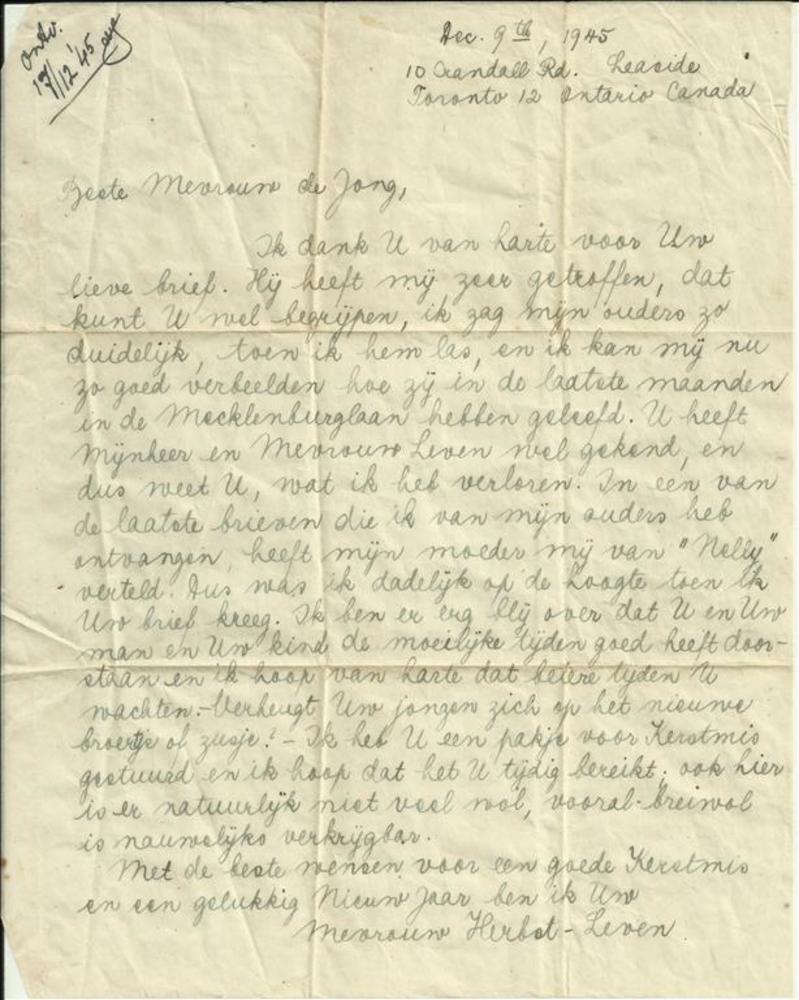 Ontv.
17/12 '45
Dec. 9th, 1945
10 Crandall Rd. Leaside
Toronto 12 Ontario Canada
Beste Mevrouw de Jong,
Ik dank U van harte voor Uw
lieve brief. Hij heeft mij zeer getroffen, dat
kunt U wel begrijpen, ik zag mijn ouders zo
duidelijk, toen ik hem las, en ik kan mij nu
zo goed verbeelden hoe zij in de laatste maanden
in de Mecklenburglaan hebben geleefd. U heeft
Mijnheer en Mevrouw Leven wel gekend, en
dus weet U, wat ik heb verloren. In een van
de laatste brieven die ik van mijn ouders heb
ontvangen, heeft mijn moeder mij van "Nelly"
verteld. Dus was ik dadelijk op de hoogte toen ik
Uw brief kreeg. Ik ben er erg blij over dat U en Uw
man en Uw kind de moeilijke tijden goed heeft door-
staan en ik hoop van harte dat betere tijden U
wachten.- Verheugt Uw jongen zich op het nieuwe
broertje of zusje? - Ik heb U een pakje voor Kerstmis
gestuurd en ik hoop dat het U tijdig bereikt; ook hier
is er natuurlijk niet veel wol, vooral breiwol
is nauwelijks verkrijgbar.
Met de beste wensen voor een goede Kerstmis
en een gelukkig Nieuw Jaar ben ik Uw
Mevrouw Herbst-Leven